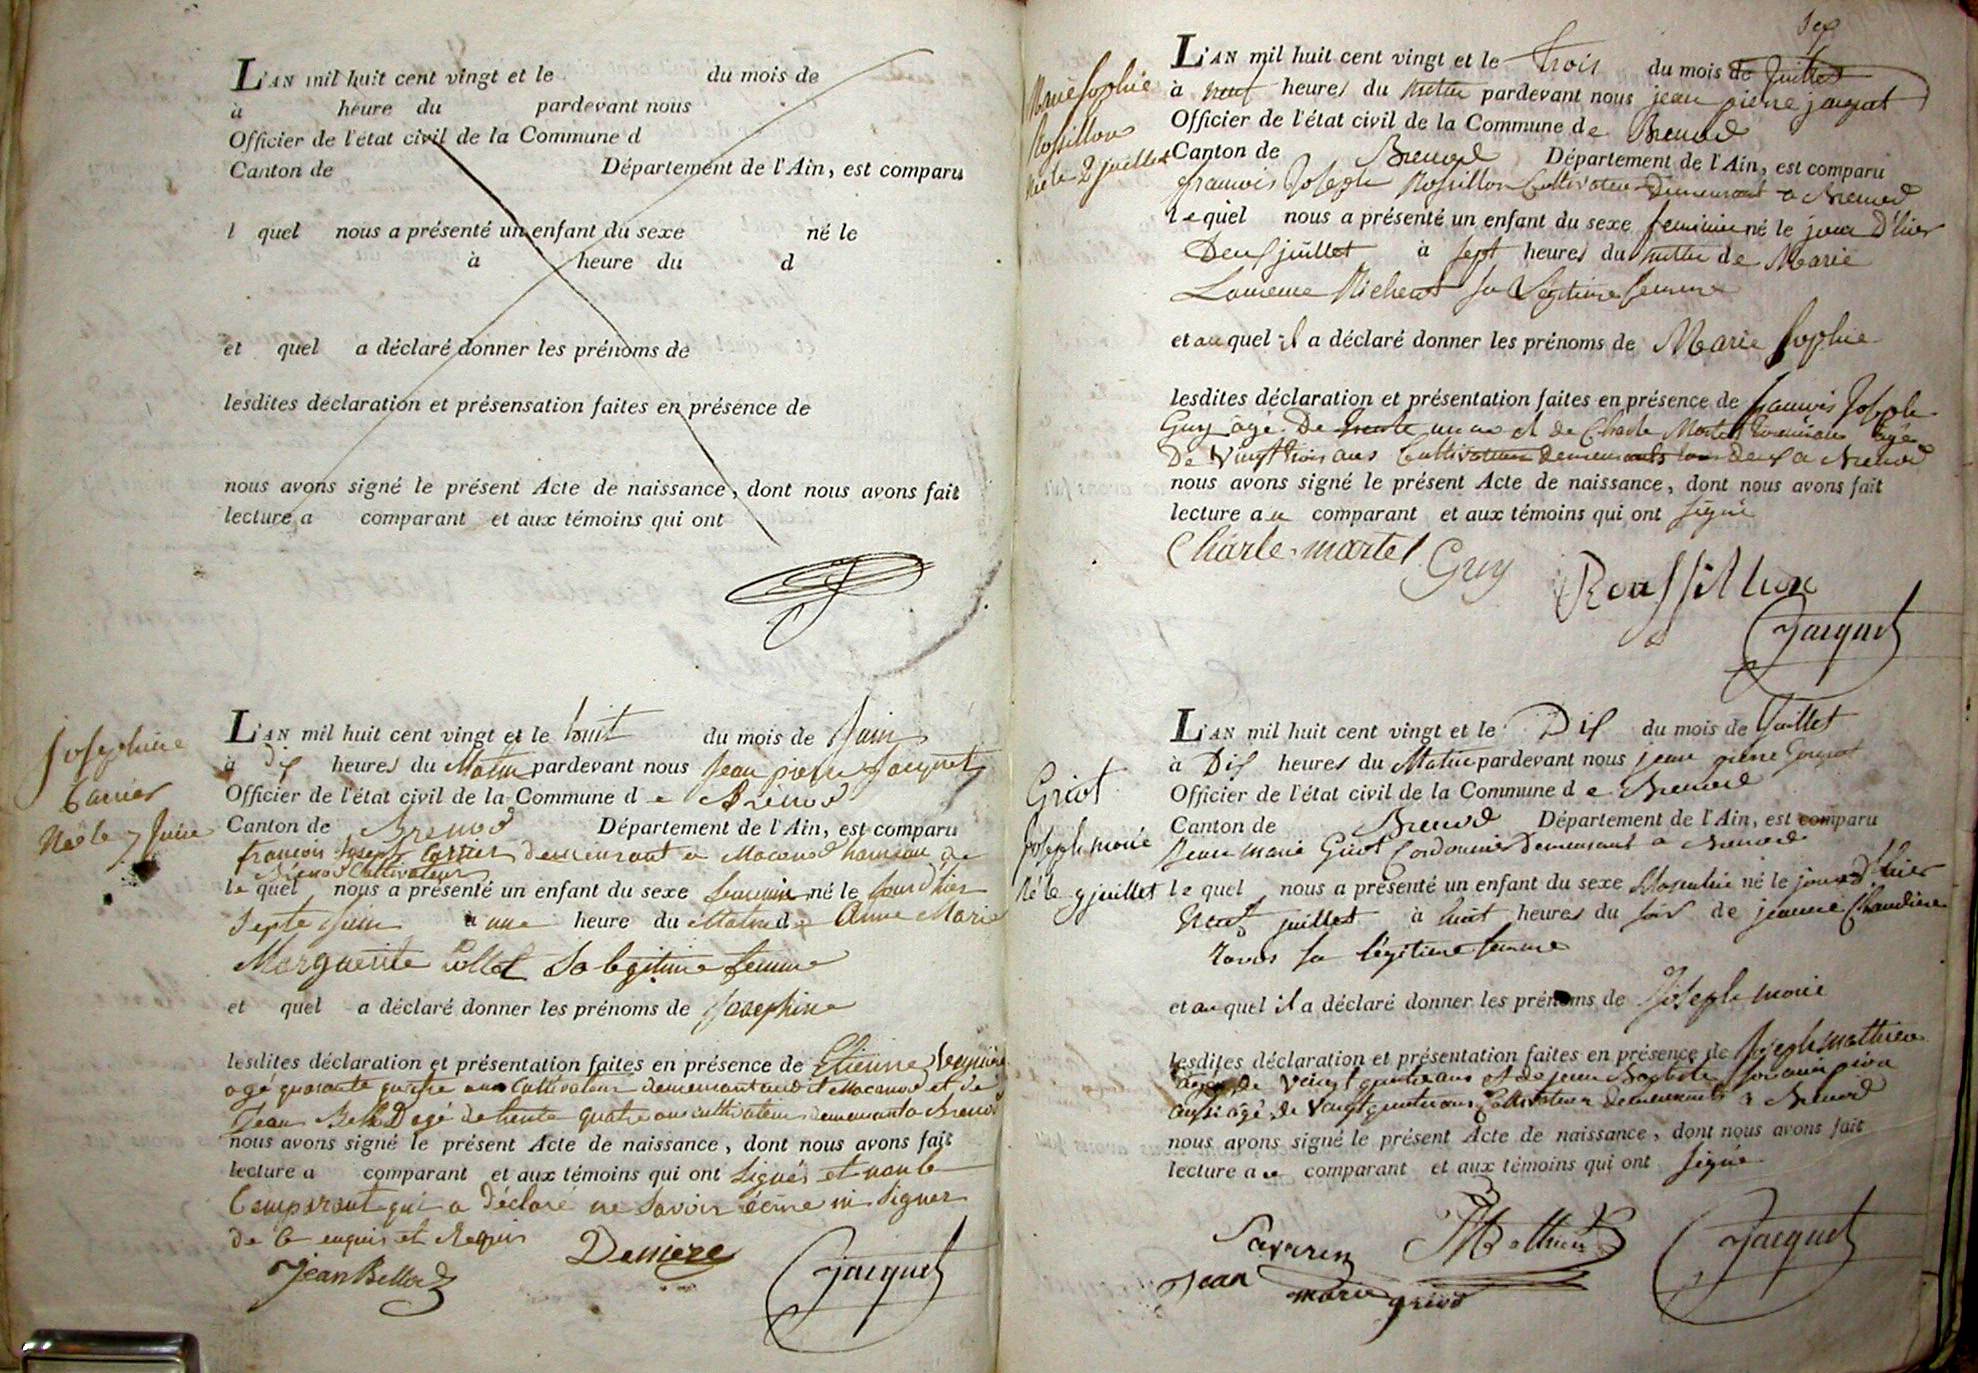 L'AN mil huit cent vingt et le du mois de
à heure du pardevant nous
Officier de l'état civil de la Commune d
Canton de Département de l'Ain, est comparu
l quel nous a présenté un enfant du sexe né le
à heure du d
et quel a déclaré donner les prénoms de
lesdites déclaration et présensation faites en présence de
nous avons signé le présent Acte de naissance, dont nous avons fait
lecture a comparant et aux témoins qui ont
Josephine
Carrier
Née le 7 Juin
L'AN mil huit cent vingt et le huit du mois de Juin
à dix heures du Matin pardevant nous Jean pierre Jacquet
Officier de l'état civil de la Commune de Brénod
Canton de Brenod Département de l'Ain, est comparu
françois Joseph Carrier demeurant a Macconod hameau de
Brénod Cultivateur
le quel nous a présenté un enfant du sexe feminin né le jour d'hier
Septe Juin à une heure du Matin de Anne Marie
Marguerite Collet Sa legitime femme
et quel a déclaré donner les prénoms de Josephine
lesdites déclaration et présentation faites en présence de Etienne
agé quarante quatre ans Cultivateur demeurant audit Macconod et de
Jean Bellod agé de trente quatre ans cultivateur demeurant a Brenod
nous avons signé le présent Acte de naissance, dont nous avons fait
lecture a comparant et aux témoins qui ont Signés et non le
Comparant qui a déclaré ne Savoir écrire ni Signer
de ce enquis et Requis
Jean Bellod Derriere Jacquet
Sep
Marie Sophie
Rossillon
Née le 2 juillet
L'AN mil huit cent vingt et le trois du mois de Juillet
à neuf heures du matin pardevant nous jean pierre jacquet
Officier de l'état civil de la Commune de Brenod
Canton de Brenod Département de l'Ain, est comparu
francois Joseph Rossillon Cultivateur Demeurant a Brenod
lequel nous a présenté un enfant du sexe feminin né le jour D'hier
Deux juillet à sept heures du matin de Marie
Laurence Richerot sa Légitime femme
et au quel il a déclaré donner les prénoms de Marie Sophie
lesdites déclaration et présentation faites en présence de francois Joseph
Guy âgé De trente un an et de Charle Martel âgé
De Vingt trois ans Cultivateurs demeurants tous Deux a Brenod
nous avons signé le présent Acte de naissance, dont nous avons fait
lecture au comparant et aux témoins qui ont signé
Charle martel Guy Roussillion
Jacquet
Griot
Joseph marie
Né le 9 juillet
L'AN mil huit cent vingt et le Dix du mois de Juillet
à Dix heures du Matin pardevant nous jean pierre Jacquet
Officier de l'état civil de la Commune de Brenod
Canton de Brenod Département de l'Ain, est comparu
Jean marie Griot Cordonnier Demeurant a Brenod
le quel nous a présenté un enfant du sexe Masculin né le jour D'hier
Neuf juillet à huit heures du soir de jeanne Claudine
Ravos sa légitime femme
et au quel il a déclaré donner les prénoms de Joseph marie
lesdites déclaration et présentation faites en présence de Joseph mathieu
agé de vingt quatre ans et de jean Baptiste
aussi agé de Vingt quatre ans Cultivateur demeurants a Brenod
nous avons signé le présent Acte de naissance, dont nous avons fait
lecture au comparant et aux témoins qui ont signé
Savarin Mathieu Jacquet
Jean marie griot